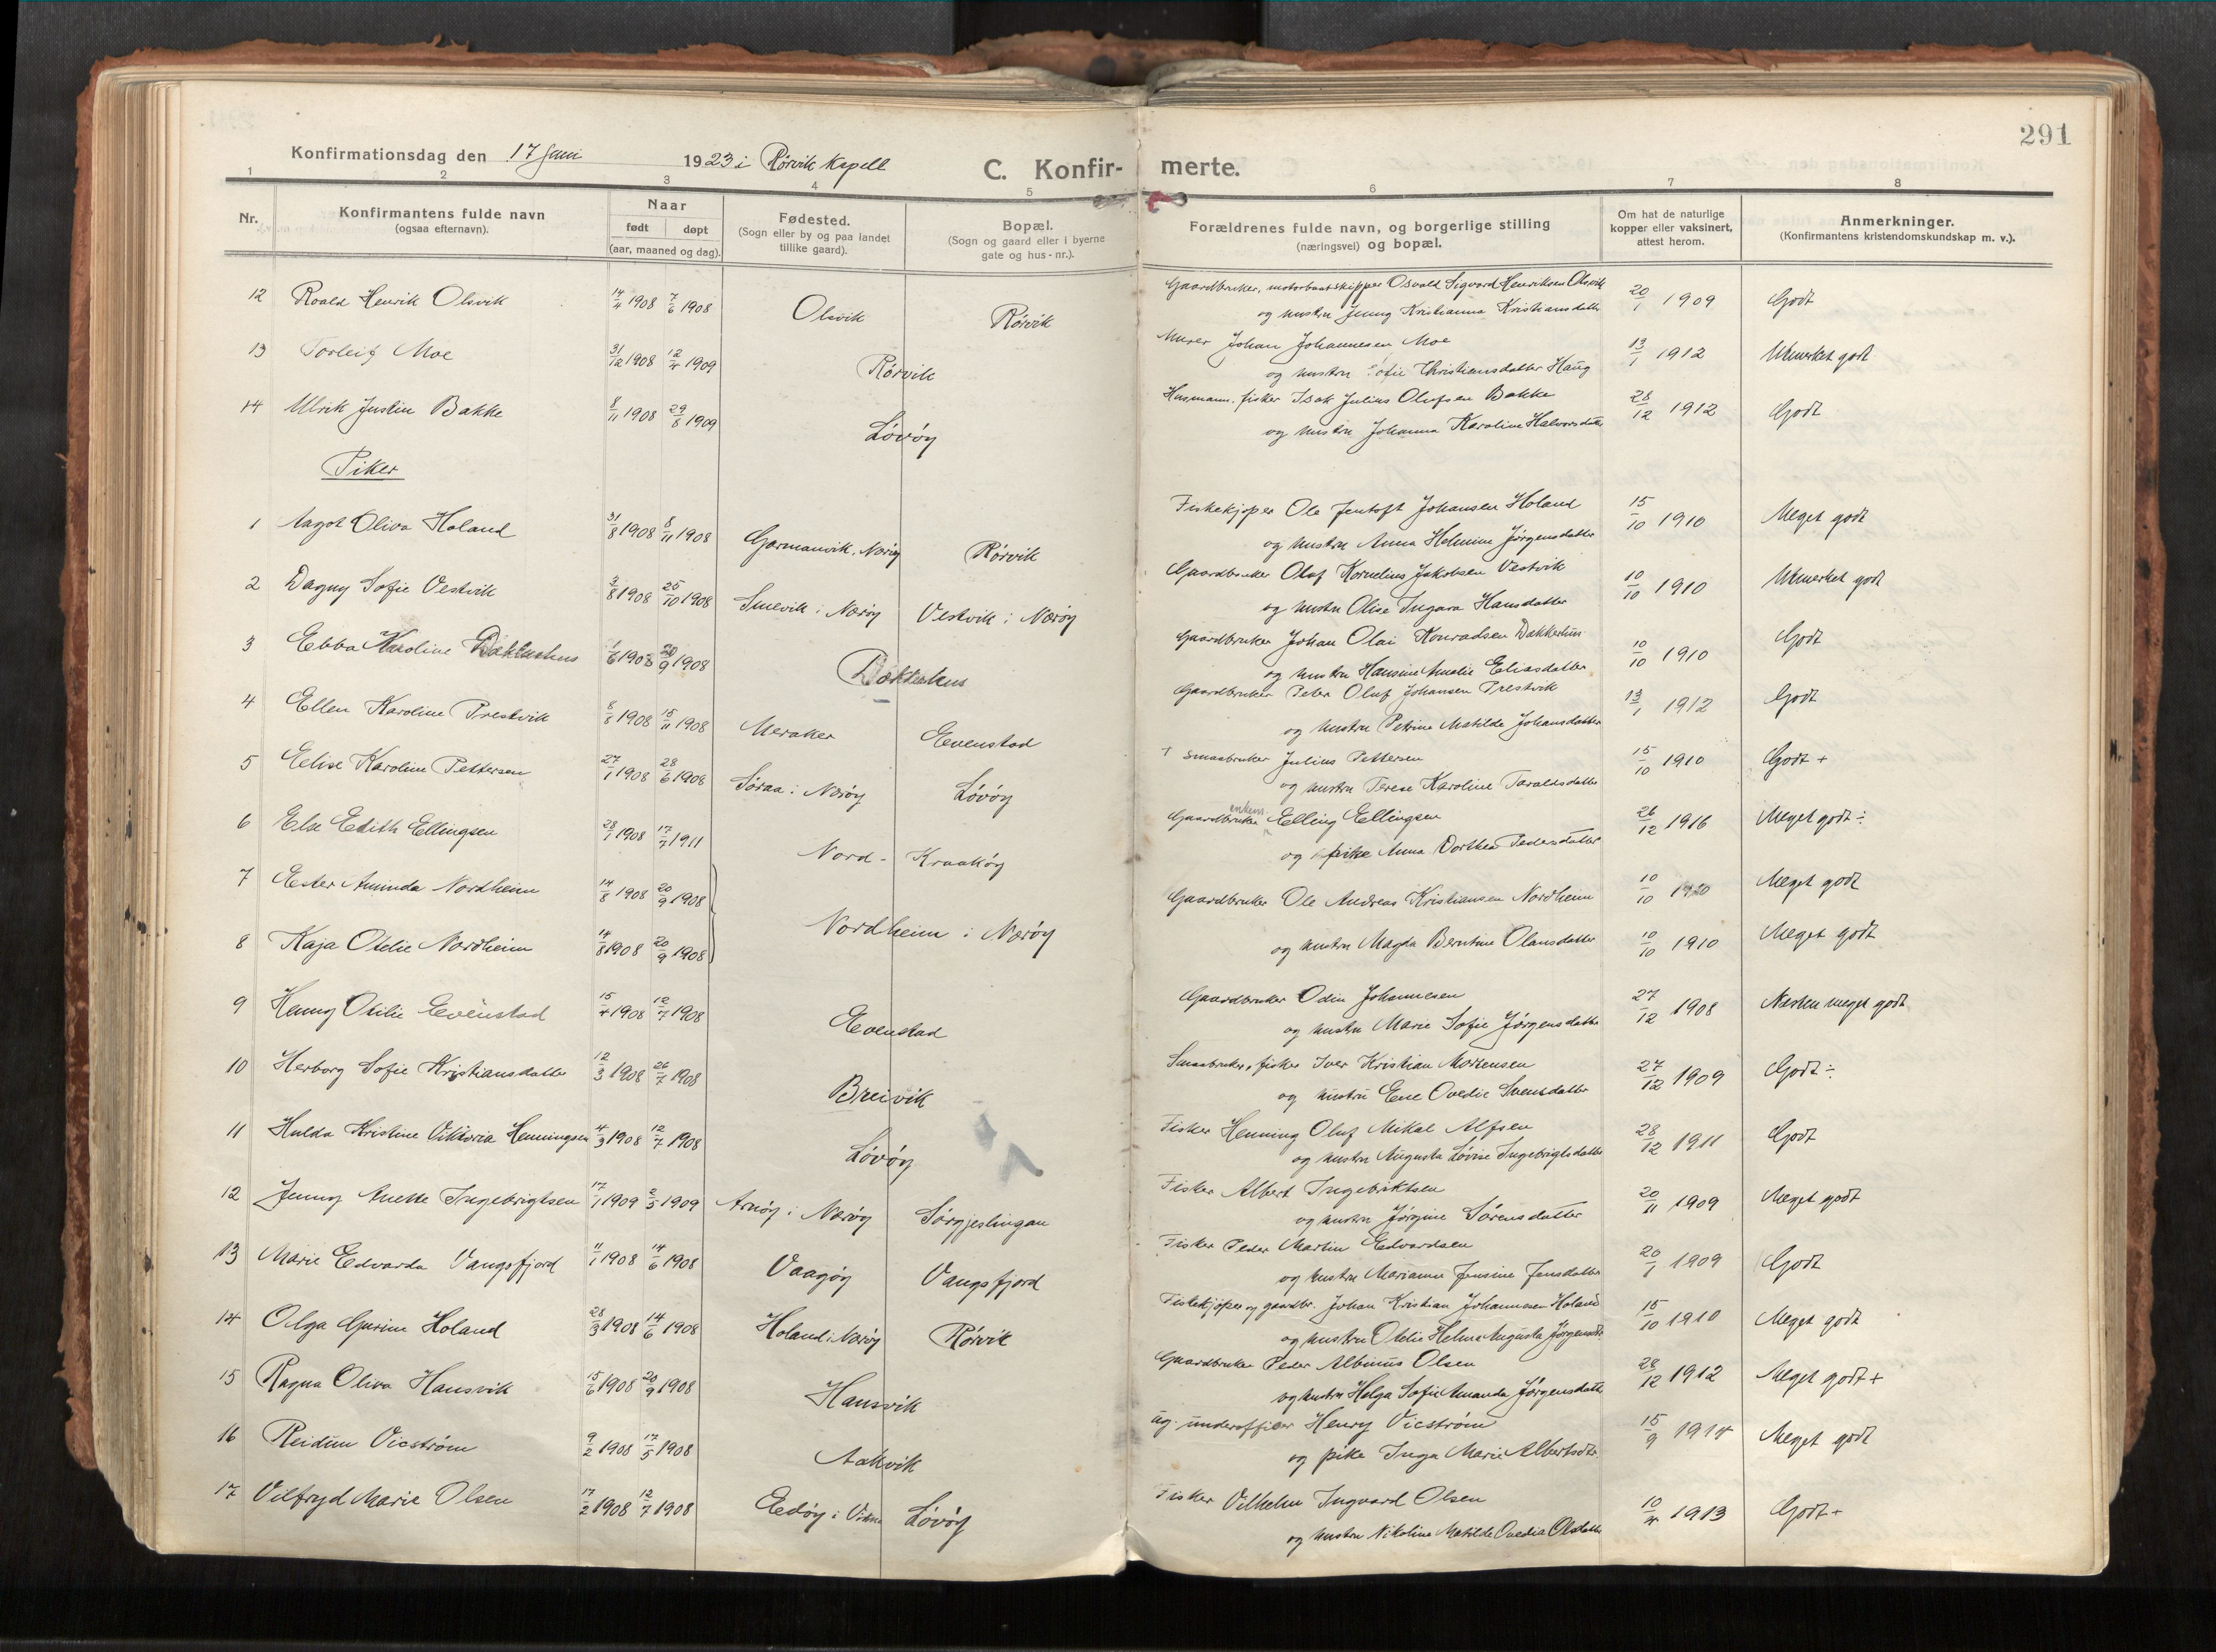 291
Konfirmationsdag den 17 Juni 1923 i Rørvik Kapell
C. Konfir- merte.
1 2 3 4 5 6 7 8
Nr.
Konfirmantens fulde navn
(ogsaa efternavn).
Naar
født døpt
(aar, maaned og dag).
Fødested.
(Sogn eller by og paa landet
tillike gaard).
Bopæl.
(Sogn og gaard eller i byerne
gate og hus-nr.).
Forældrenes fulde navn, og borgerlige stilling
(næringsvei) og bopæl.
Om hat de naturlige
kopper eller vaksinert,
attest herom.
Anmerkninger.
(Konfirmantens kristendomskundskap m. v.).
12 Roald Henrik Olsvik 14/4 1908 7/6 1908 Olsvik Rørvik Gaardbruker, motorbaatskipper Osvald Sigvard Henriksen Olsvik 20/1 1909 Godt
og hustru Jenny Kristianna Kristiansdatter
13 Torleif Moe 31/12 1908 12/4 1909 Rørvik Murer Johan Johannesen Moe 13/1 1912 Utmerket godt
og hustru Sofie Christiansdatter Haug
14 Ulrik Justin Bakke 8/11 1908 29/8 1909 Løvøy Husmann, fisker Isak Julius Olufsen Bakke 28/12 1912 Godt
og hustru Johanna Karoline Halvorsdatter
Piker
1 Aagot Oliva Holand 31/8 1908 8/11 1908 Garmanvik, Nærøy Rørvik Fiskekjøper Ole Jentoft Johansen Holand 15/10 1910 Meget godt
og hustru Anna Helmine Jørgensdatter
2 Dagny Sofie Vestvik 3/8 1908 25/10 1908 Smevik i Nærøy Vestvik i Nærøy Gaardbruker Oluf Kornelius Jakobsen Vestvik 10/10 1910 Utmerket godt
og hustru Olise Ingara Hansdatter
3 Ebba Karoline Dakkushus 1/6 1908 20/9 1908 Gaardbruker Johan Olai Konradsen 10/10 1910 Godt
og hustru Hansine Amalie Eliasdatter
4 Ellen Karoline Prestvik 8/8 1908 15/11 1908 Meraker Evenstad Gaardbruker Peter Oluf Johansen Prestvik 13/1 1912 Godt
og hustru Petrine Matilde Johansdatter
5 Elise Karoline Pettersen 27/1 1908 28/6 1908 Søraa i Nærøy Løvøy + Smaabruker Julius Pettersen 15/10 1910 Godt +
og hustru Terese Karoline Taraldsdatter
6 Else Edith Ellingsen 28/1 1908 17/7 1911 Nord-Kraakøy Gaardbruker enkem. Elling Ellingsen 26/12 1916 Meget godt ÷
og pike Anna Dorthea Pedersdatter
7 Ester Aminda Nordheim 14/8 1908 20/9 1908 Nordheim i Nærøy Gaardbruker Ole Andreas Kristiansen Nordheim 10/10 1920 Meget godt
8 Kaja Otelie Nordheim 14/8 1908 20/9 1908 og hustru Magda Berntine Olausdatter 10/10 1910 Meget godt
9 Henny Otilie Evenstad 15/4 1908 12/7 1908 Evenstad Gaardbruker Odin Johannesen 27/12 1908 Nesten meget godt
og hustru Marie Sofie Jørgensdatter
10 Herborg Sofie Kristiansdatter 12/3 1908 26/7 1908 Breivik Smaabruker, fisker Iver Kristian Mortensen 27/12 1909 Godt ÷
og hustru Ene Ovedie Svensdatter
11 Hulda Kristine Viktoria Henningsen 4/3 1908 12/7 1908 Løvøy Fisker Henning Oluf Mikal Alfsen 28/12 1911 Godt
og hustru Augusta Lovise Ingebrigtsdatter
12 Jenny Anette Ingebrigtsen 17/1 1909 2/5 1909 Arnøy i Nærøy Sørgjeslingan Fisker Albert Ingebriktsen 20/11 1909 Meget godt
og hustru Jørgine Sørensdatter
13 Marie Edvarda Vangsfjord 11/1 1908 14/6 1908 Vaagøy Vangsfjord Fisker Peder Martin Edvardsen 20/1 1909 Godt
og hustru Marianne Jensine Jensdatter
14 Olga Gurine Holand 28/3 1908 14/6 1908 Holand i Nærøy Rørvik Fiskekjøper og gaardbr. Johan Kristian Johannesen Holand 15/10 1910 Meget godt
og hustru Otelie Helma Augusta Jørgensdtr.
15 Ragna Oliva Hansvik 15/6 1908 20/9 1908 Hansvik Gaardbruker Peder Albinus Olsen 28/12 1912 Meget godt +
og hustru Helga Sofie Amanda Jørgensdatter
16 Reidun Vicstrøm 9/2 1908 17/5 1908 Aakvik ug. underoffiser Henry Vicstrøm 15/9 1914 Meget godt
og pike Inga Marie Albertsdtr.
17 Vilfryd Marie Olsen 17/2 1908 12/7 1908 Eedøy i Vikna Løvøy Fisker Vilhelm Ingvard Olsen 10/4 1913 Godt +
og hustru Nikoline Matilde Ovedia Olsdatter